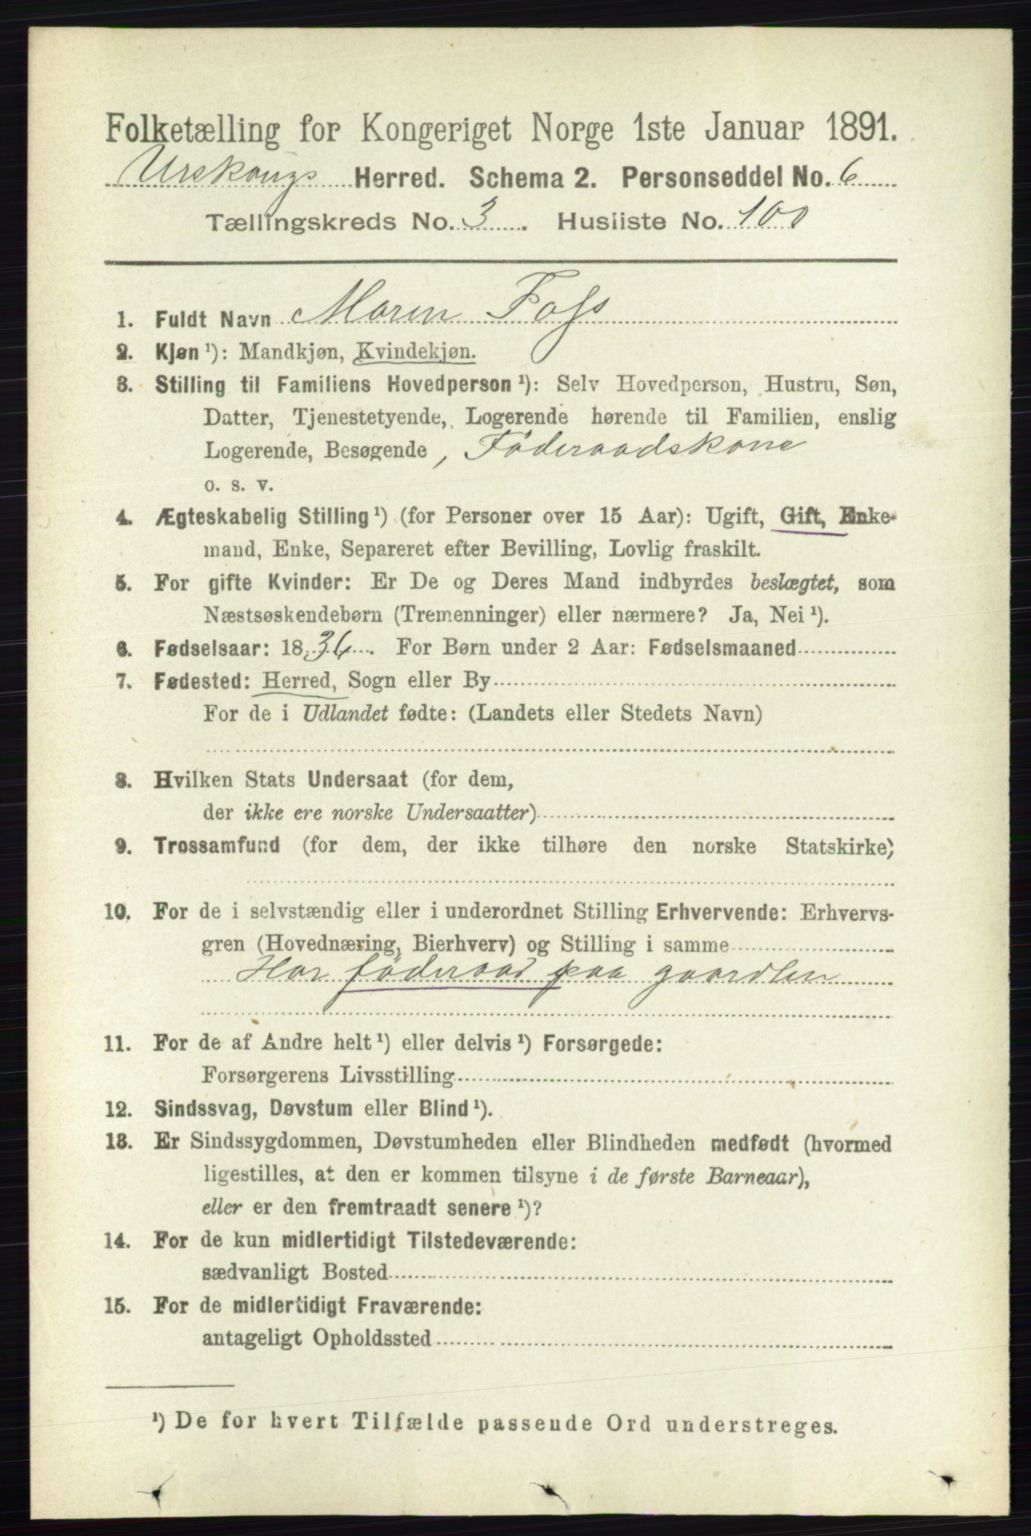 Folketælling for Kongeriget Norge 1ste Januar 1891.
Urskougs Herred. Schema 2. Personseddel No. 6
Tællingskreds No. 3. Husliste No. 100
1. Fuldt Navn Maren Foss
2. Kjøn ¹): Mandkjøn, Kvindekjøn.
3. Stilling til Familiens Hovedperson ¹): Selv Hovedperson, Hustru, Søn,
Datter, Tjenestetyende, Logerende hørende til Familien, enslig
Logerende, Besøgende, Föderaadskone
o. s. v.
4. Ægteskabelig Stilling ¹) (for Personer over 15 Aar): Ugift, Gift, Enke-
mand, Enke, Separeret efter Bevilling, Lovlig fraskilt.
5. For gifte Kvinder: Er De og Deres Mand indbyrdes beslægtet, som
Næstsøskendebørn (Tremenninger) eller nærmere? Ja, Nei ¹).
6. Fødselsaar: 1836. For Børn under 2 Aar: Fødselsmaaned
7. Fødested: Herred, Sogn eller By
For de i Udlandet fødte: (Landets eller Stedets Navn)
8. Hvilken Stats Undersaat (for dem,
der ikke ere norske Undersaatter)
9. Trossamfund (for dem, der ikke tilhøre den norske Statskirke)
10. For de i selvstændig eller i underordnet Stilling Erhvervende: Erhvervs-
gren (Hovednæring, Bierhverv) og Stilling i samme
Har föderaad paa gaarden
11. For de af Andre helt ¹) eller delvis ¹) Forsørgede:
Forsørgerens Livsstilling
12. Sindssvag, Døvstum eller Blind ¹).
13. Er Sindssygdommen, Døvstumheden eller Blindheden medfødt (hvormed
ligestilles, at den er kommen tilsyne i de første Barneaar),
eller er den fremtraadt senere ¹)?
14. For de kun midlertidigt Tilstedeværende:
sædvanligt Bosted
15. For de midlertidigt Fraværende:
antageligt Opholdssted
¹) De for hvert Tilfælde passende Ord understreges.